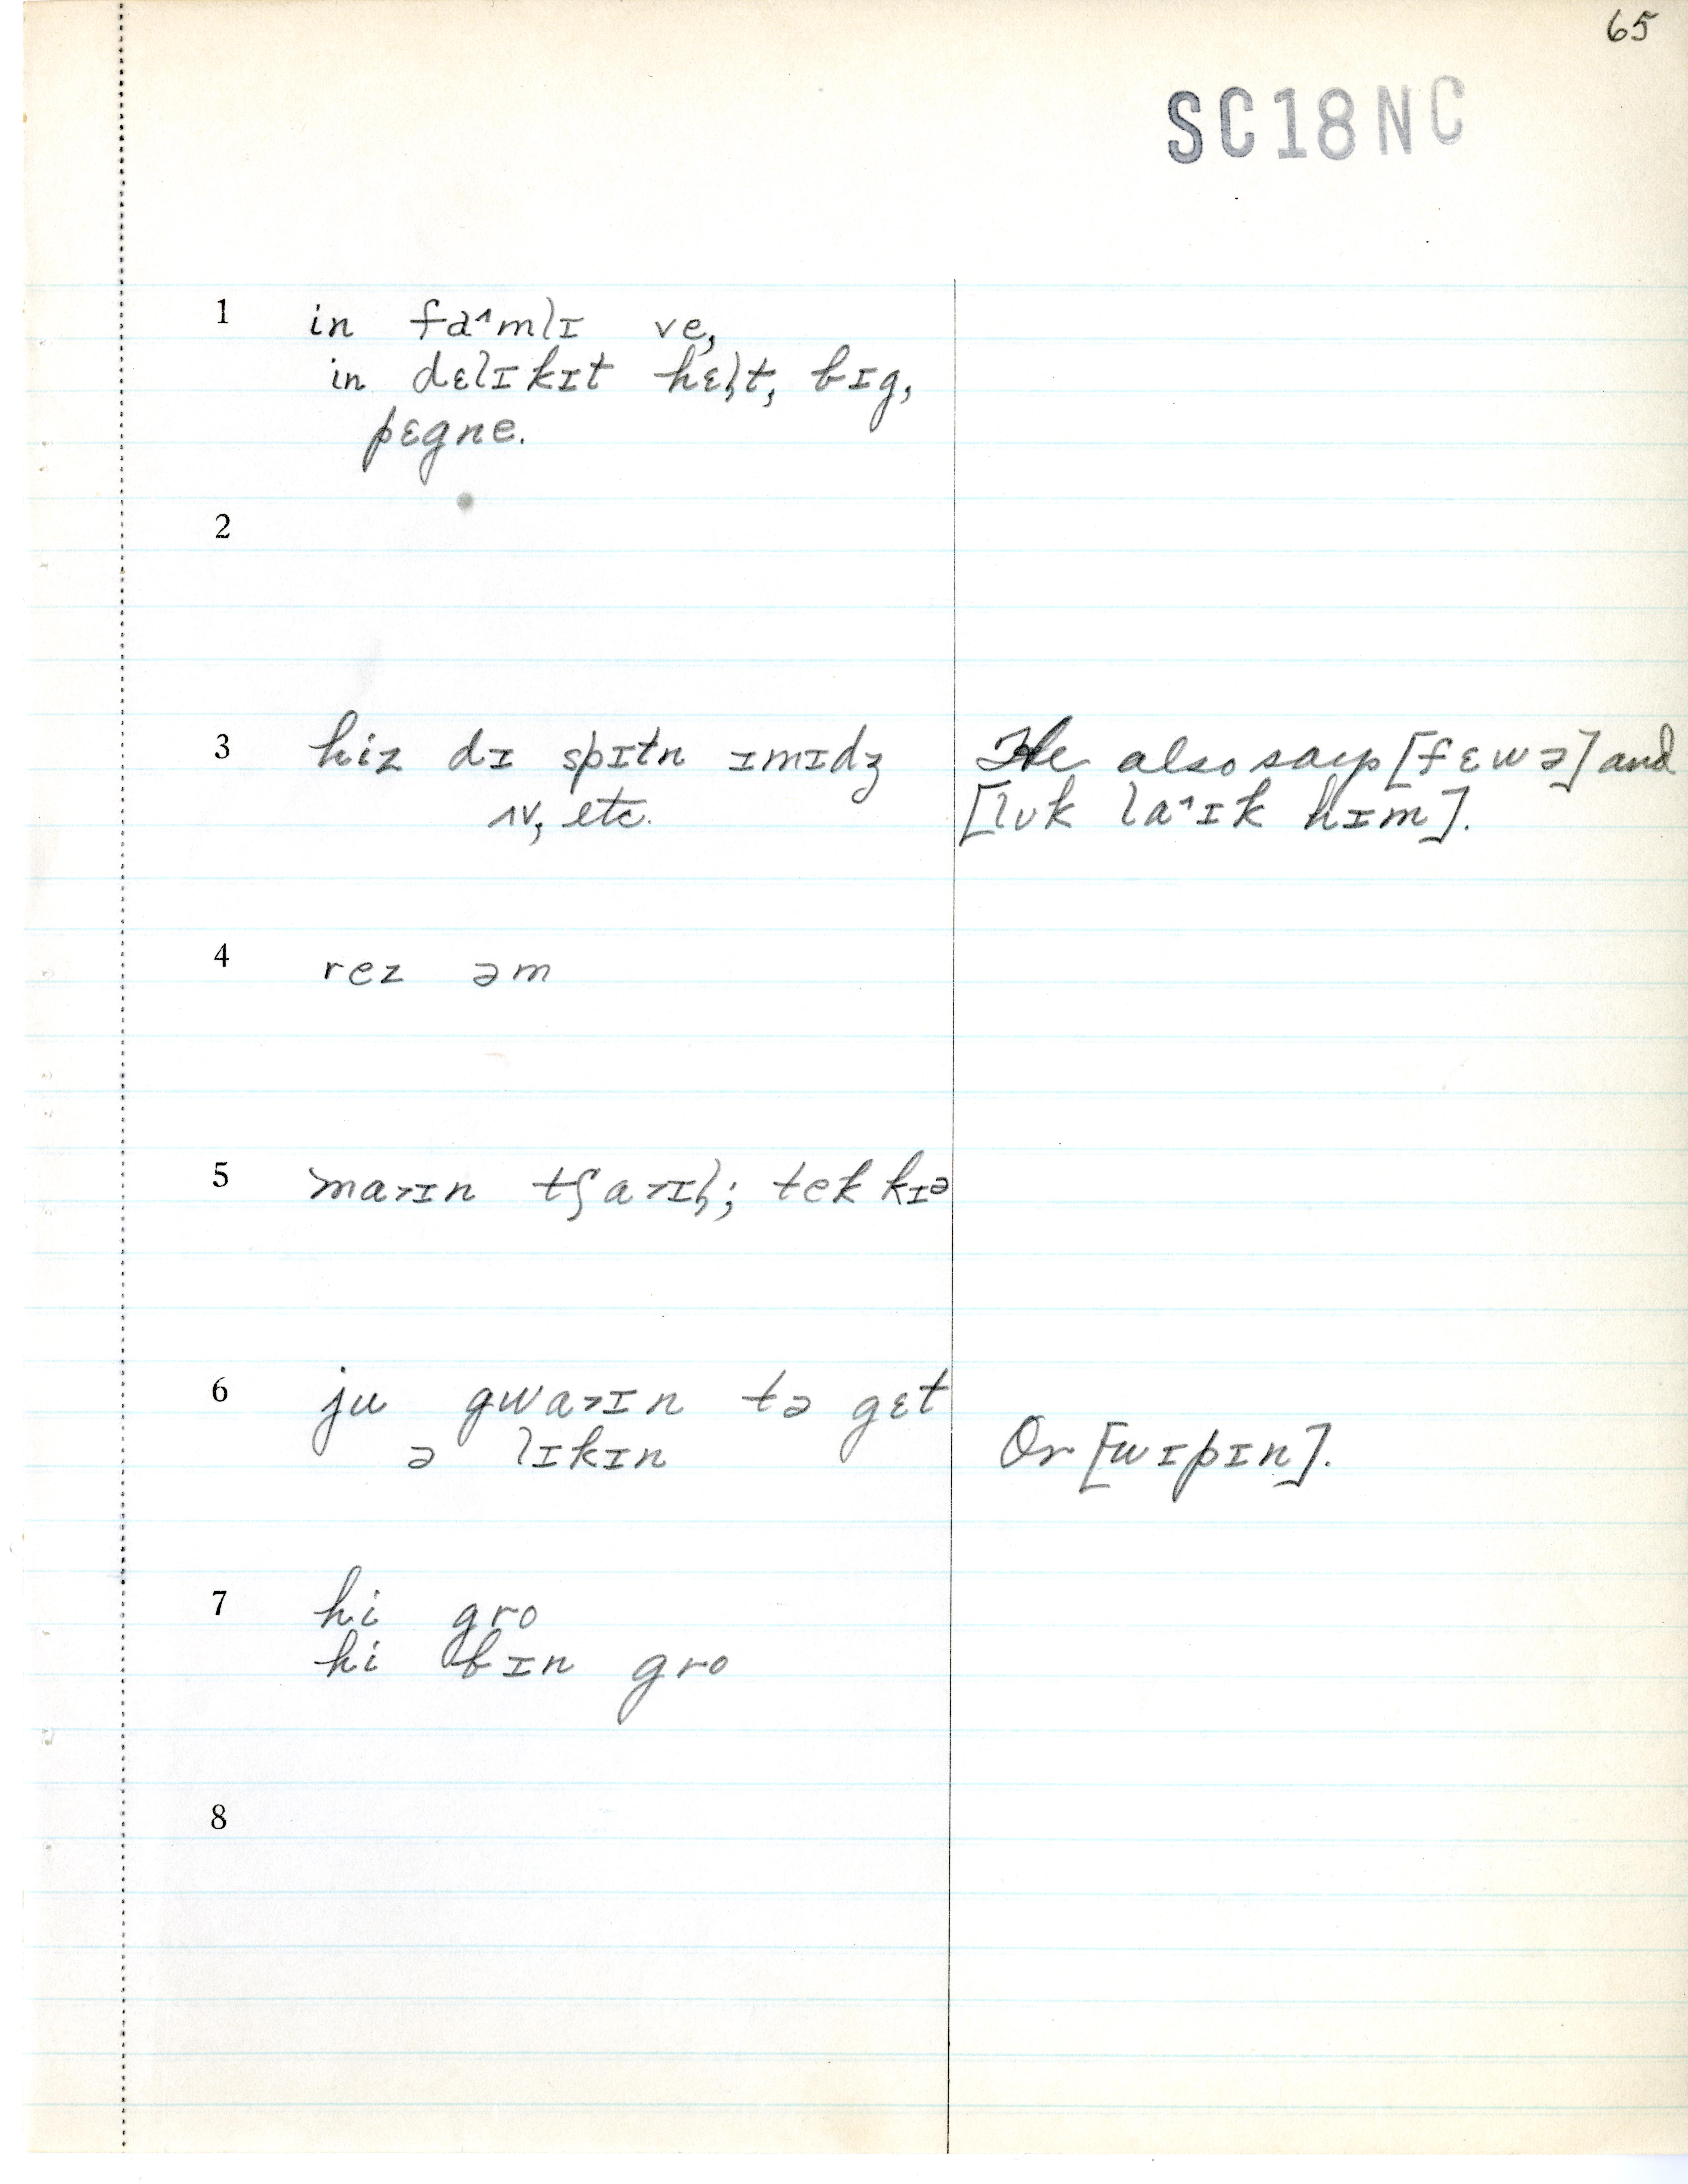 65
SC18NC
1 in fa˄mlɪ ve,
in dɛlɪkɪt hɛlt, bɪg,
pɛgne.
2
3 hiz dɪ spɪtn ɪmɪdʒ He also says [fɛwə] and
ʌv, etc. [lʊk la˄ɪk hɪm].
4 rez əm
5 ma˃ɪn tʃa˃ɪl; tek kɪə
6 ju gwa˃ɪn tə gɛt
ə lɪkɪn Or [wɪpɪn].
7 hi gro
hi bɪn gro
8